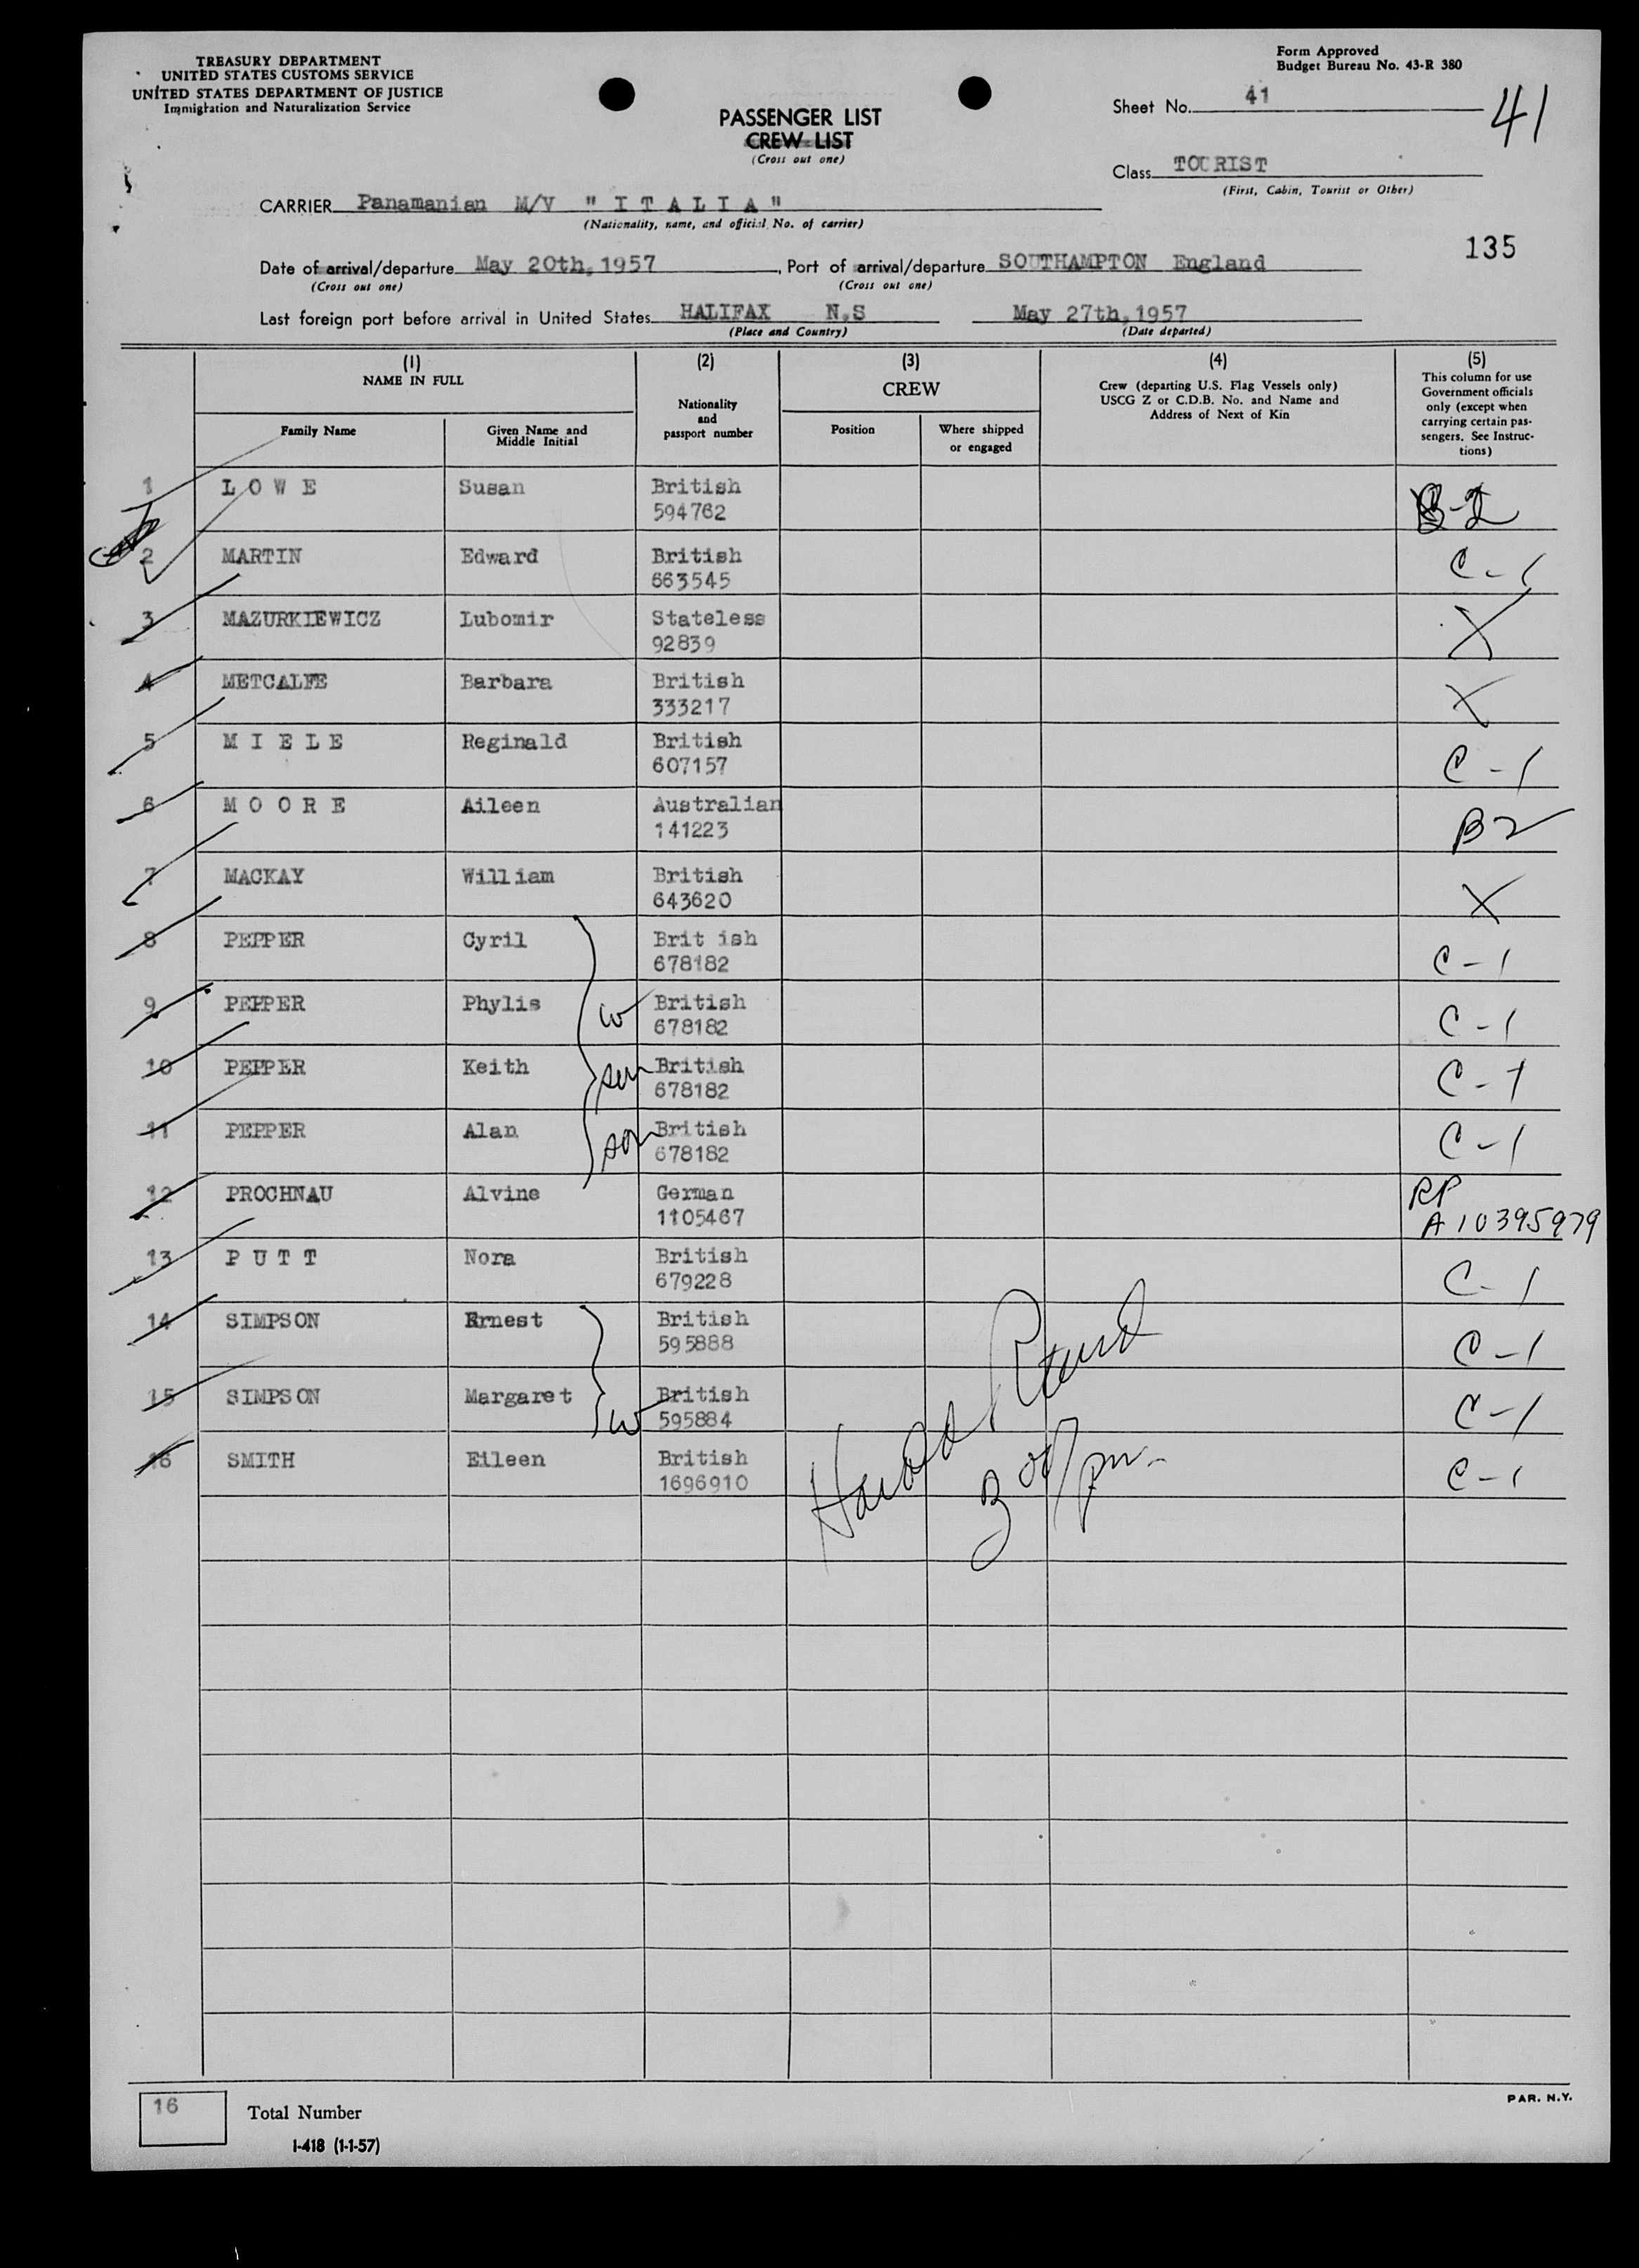 TREASURY DEPARTMENT
UNITED STATES CUSTOMS SERVICE
UNITED STATES DEPARTMENT OF JUSTICE
Immigration and Naturalization Service
Form Approved
Budget Bureau No. 43-R 380
PASSENGER LIST
CREW LIST
(Cross out one)
Sheet No. 41
41
Class TOURIST
(First, Cabin, Tourist or Other)
CARRIER Panamanian M/V " I T A L I A "
(Nationality, name, and official No. of carrier)
135
Date of arrival/departure May 20th, 1957, Port of arrival/departure SOUTHAMPTON England
(Cross out one) (Cross out one)
Last foreign port before arrival in United States HALIFAX N.S May 27th, 1957
(Place and Country) (Date departed)
(1)
NAME IN FULL
Family Name
Given Name and
Middle Initial
(2)
Nationality
and
passport number
(3)
CREW
Position
Where shipped
or engaged
(4)
Crew (departing U.S. Flag Vessels only)
USCG Z or C.D.B. No. and Name and
Address of Next of Kin
(5)
This column for use
Government officials
only (except when
carrying certain pas-
sengers. See Instruc-
tions)
1 L O W E Susan British
594762 B-2
2 MARTIN Edward British
663545 C-1
3 MAZURKIEWICZ Lubomir Stateless
92839 X
4 METCALFE Barbara British
333217 X
5 M I E L E Reginald British
607157 C-1
6 M O O R E Aileen Australian
141223 B2
7 MACKAY William British
643620 X
8 PEPPER Cyril Brit ish
678182 C-1
9 PEPPER Phylis w British
678182 C-1
10 PEPPER Keith son British
678182 C-1
11 PEPPER Alan son British
678182 C-1
12 PROCHNAU Alvine German
1105467 RP
A10395979
13 P U T T Nora British
679228 C-1
14 SIMPSON Ernest British
595888 C-1
15 SIMPSON Margaret w British
595884 C-1
16 SMITH Eileen British
1696910 C-1
Harold
3 00/pm.
16 Total Number
I-418 (1-1-57)
PAR. N.Y.